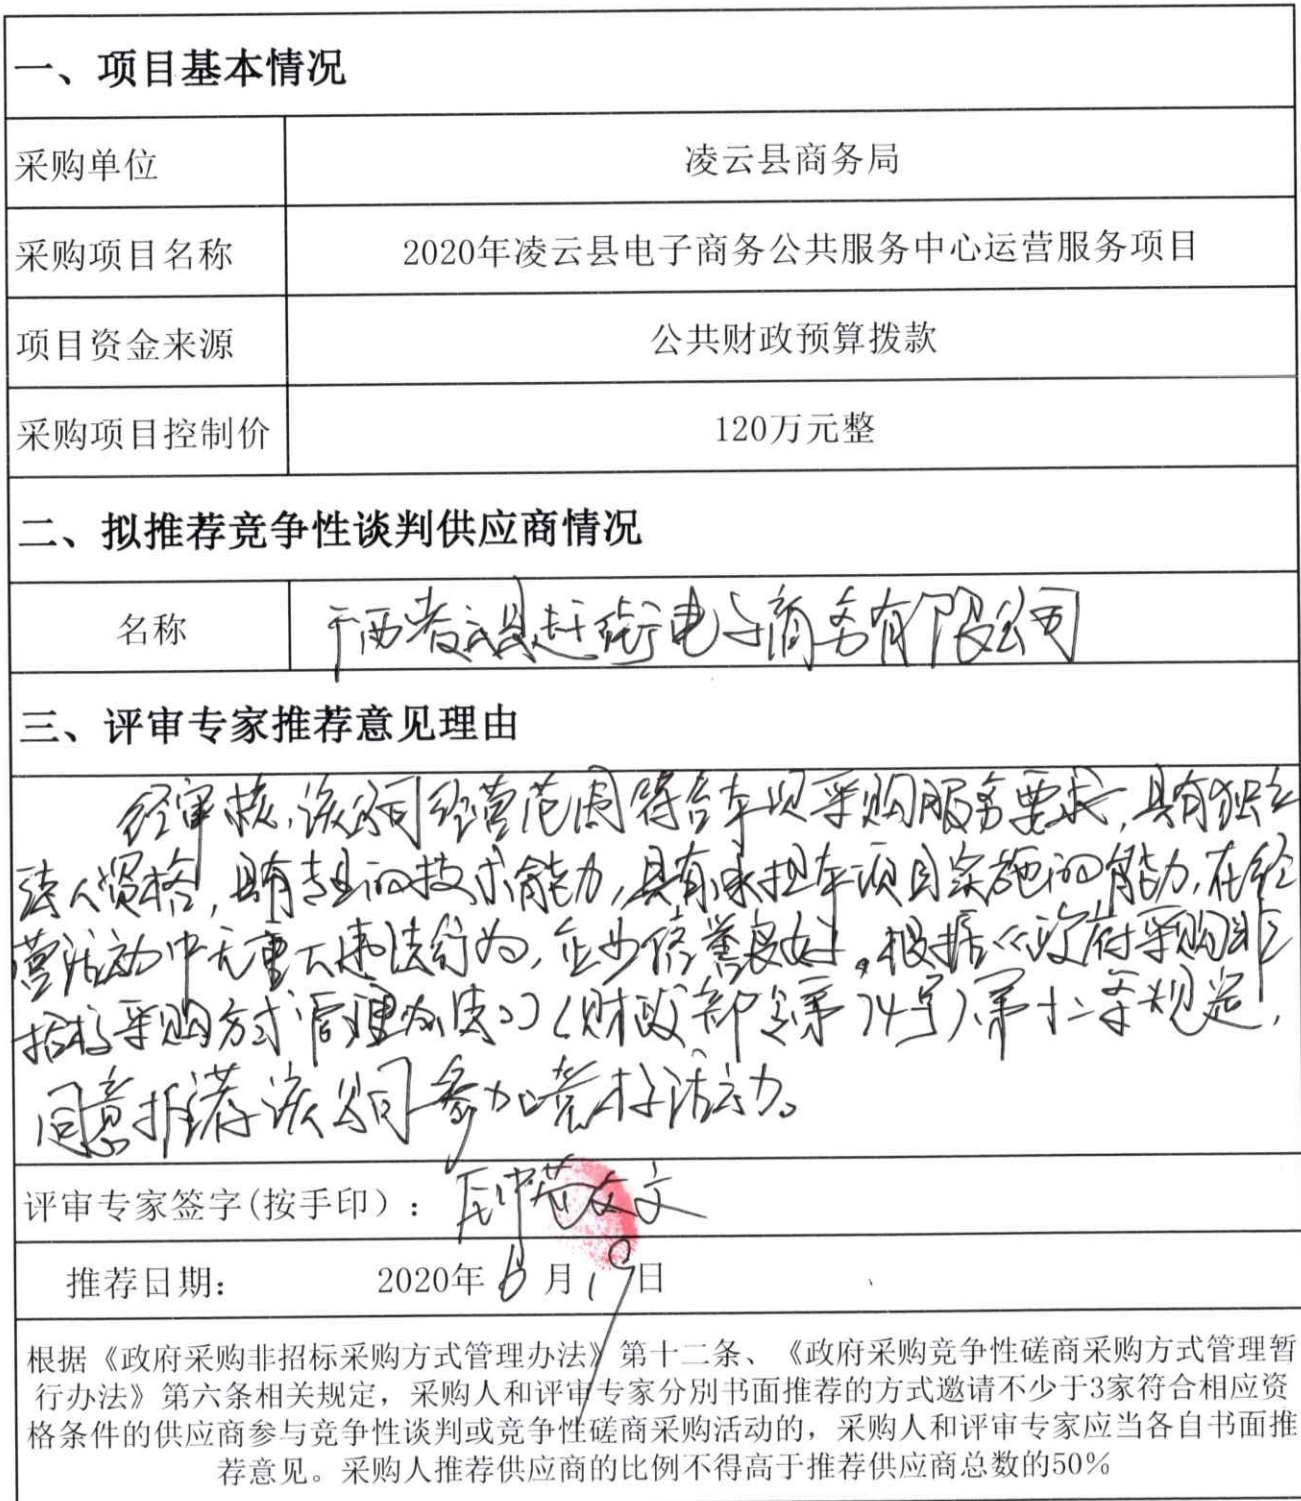 一、项目基本情况
采购单位 凌云县商务局
采购项目名称 2020年凌云县电子商务公共服务中心运营服务项目
项目资金来源 公共财政预算拨款
采购项目控制价 120万元整
二、拟推荐竞争性谈判供应商情况
名称 广西凌云县赶街电子商务有限公司
三、评审专家推荐意见理由
经审核,该公司经营范围符合本项采购服务要求,具有独立
法人资格,具有专业的技术能力,具有承担本项目实施的能力,在经
营活动中无重大违法行为,企业信誉良好。根据《政府采购非
招标采购方式管理办法》(财政部令第74号)第十二条规定,
同意推荐该公司参加竞标活动。
评审专家签字(按手印):
推荐日期: 2020年6月19日
根据《政府采购非招标采购方式管理办法》第十二条、《政府采购竞争性磋商采购方式管理暂
行办法》第六条相关规定，采购人和评审专家分别书面推荐的方式邀请不少于3家符合相应资
格条件的供应商参与竞争性谈判或竞争性磋商采购活动的，采购人和评审专家应当各自书面推
荐意见。采购人推荐供应商的比例不得高于推荐供应商总数的50%